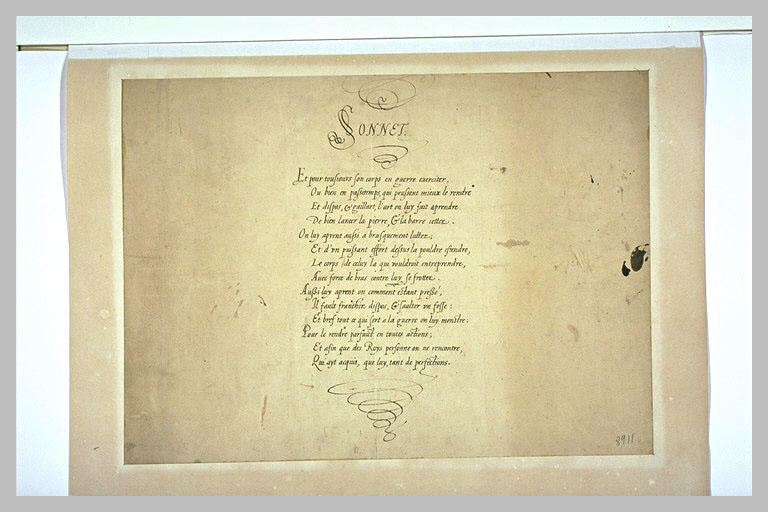 SONNET.
Et pour tousiours son corps en guerre exerciter,
Ou bien en passetemps, qui peussent mieux le rendre
Et dispos, & gaillart, l'art on luy fait aprendre
De bien lancer la pierre, & la barre ietter.
On luy aprent aussi a brusquement lutter;
Et d'vn puissant effort dessus la pouldre estendre,
Le corps de celuy la qui vouldroit entreprendre,
Avec force de bras contre luy se frotter.
Aussi luy aprent on comment estant pressé,
Il fault franchir dispos, & saulter vn fossé:
Et bref tout ce qui sert a la guerre on luy monstre:
Pour le rendre parfaict en toutes actions;
Et afin que des Roys personne on ne rencontre,
Qui ayt acquis, que luy, tant de perfections.
8911